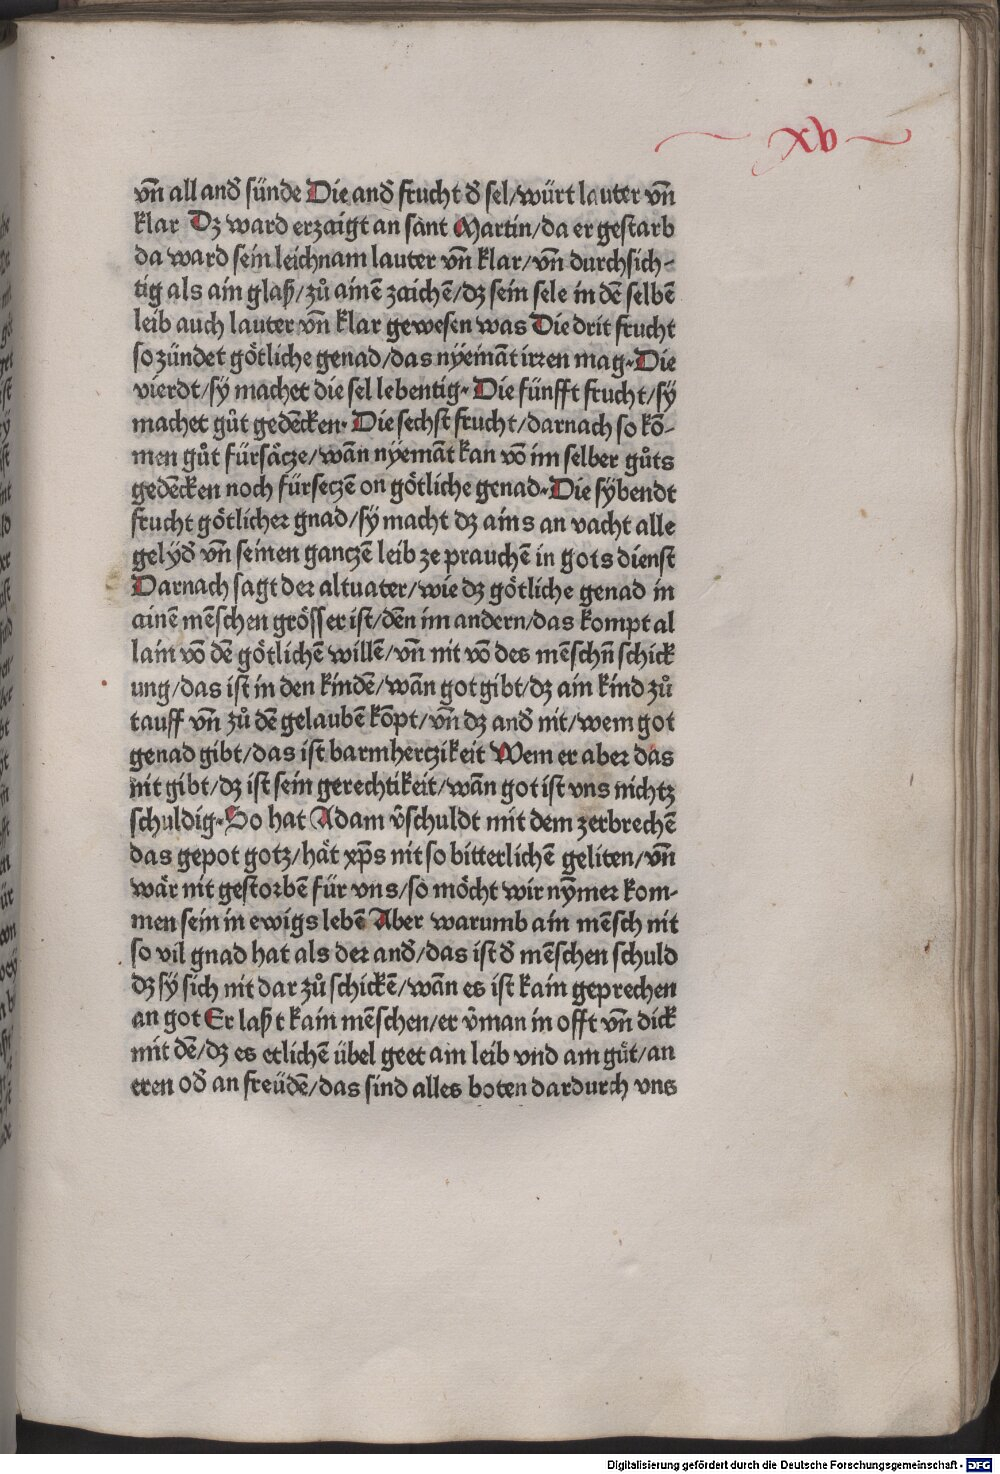 xv
vñ all and̄ sünde Die and̄ frucht d̄ sel/würt lauter vñ
klar Dz ward erzaigt an sànt Martin/da er gestarb
da ward sein leichnam lauter vñ klar/vñ durchsich-
tig als ain glaß/zů ainē zaichē/dz sein sele in dē selbē
leib auch lauter vñ klar gewesen was Die drit frucht
so zündet götliche genad/das nÿemāt irren mag. Die
vierdt/sÿ machet die sel lebentig. Die fünfft frucht/sÿ
machet gůt gedēcken. Die sechst frucht/darnach so kō-
men gůt fürsäcze/wān nÿemāt kan vō im selber gůts
gedēcken noch fürseczē on götliche genad. Die sÿbendt
frucht götlicher gnad/sÿ macht dz ains an vacht alle
gelÿd̄ vñ seinen ganczē leib ze prauchē in gots dienst
Darnach sagt der altuater/wie dz götliche genad in
ainē mēschen grösser ist/dēn im andern/das kompt al
lain vō dē götlichē willē/vñ nit vō des mēschñ schick
ung/das ist in den kindē/wān got gibt/dz ain kind zů
tauff vñ zů dē gelaubē kōpt/vñ dz and̄ nit/wem got
genad gibt/das ist barmherczikeit Wem er aber das
nit gibt/dz ist sein gerechtikeit/wān got ist vns nichtz
schuldig. So hat Adam v̄schuldt mit dem zerbrechē
das gepot gotz/hät xp̄s nit so bitterlichē geliten/vñ
wär nit gestorbē für vns/so möcht wir nȳmer kom-
men sein in ewigs lebē Aber warumb ain mēsch nit
so vil gnad hat als der and̄/das ist d̄ mēschen schuld
dz sÿ sich nit dar zů schickē/wān es ist kain geprechen
an got Er laßt kain mēschen/er v̄man in offt vñ dick
mit dē/dz es etlichē übel geet am leib vnd am gůt/an
eren od̄ an freüdē/das sind alles boten dardurch vns
Digitalisierung gefördert durch die Deutsche Forschungsgemeinschaft - DFG